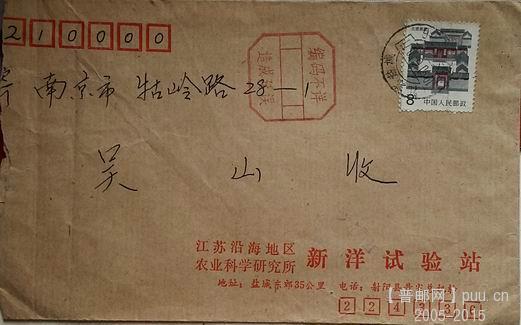 210000
编码不详
造成延误
8
中国人民邮政
寄 南京市 牯岭路 28-1
吴 山 收
江苏沿海地区
农业科学研究所 新洋试验站
地址：盐城东郊35公里 电话：射阳县
224336
[晋邮网] puu.cn
2005-2015